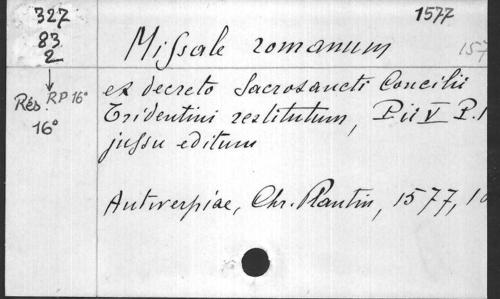 327
83
2
Rés. RP 16°
16°
1577
157
Missale romanum
ex decreto Sacrosancti Concilii
Tridentini restitutum, Pii V P.
jussu editum
Antverpiae, Chr. Plantin, 1577,